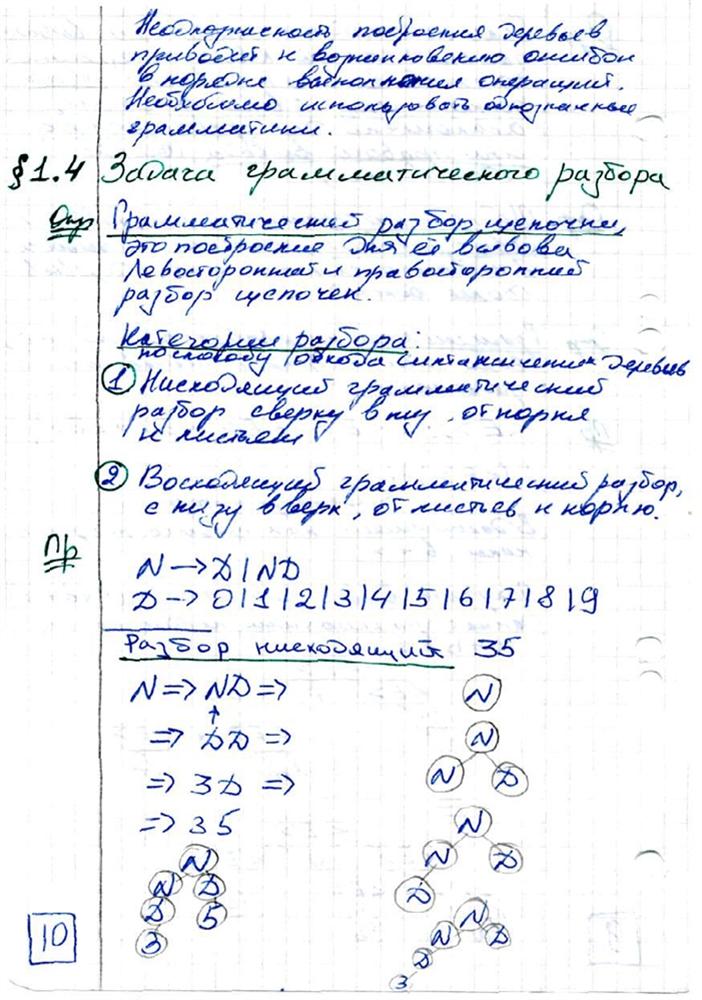 Неоднозначность построения деревьев
приводит к возникновению ошибок
в порядке выполнения операций.
Необходимо использовать однозначные
грамматики.
§1.4 Задача грамматического разбора
Опр Грамматический разбор цепочки,
это построение для её вывода
Левосторонний и правосторонний
разбор цепочек.
Категории разбора:
по способу обхода синтаксических деревьев
1 Нисходящий грамматический
разбор сверху вниз, от корня
к листьям
2 Восходящий грамматический разбор,
с низу вверх, от листьев к корню.
Пр
N → D | ND
D → 0|1|2|3|4|5|6|7|8|9
Разбор нисходящий 35
N => ND => N
↑
=> DD => N
N D
=> 3D =>
=> 35 N
N D
D
N
N D
D 5
3
N
N D
D
3
10